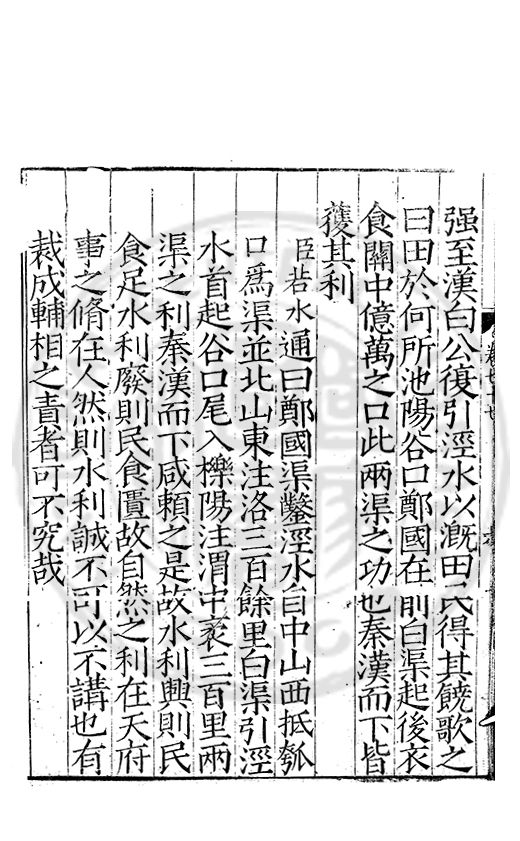 强至漢白公復引涇水以漑田民得其饒歌之
曰田於何所池陽谷口鄭國在前白渠起後衣
食關中億萬之口此兩渠之功也秦漢而下皆
蒦其利
臣若水通曰鄭國渠鑿涇水自中山西抵瓠
口爲渠並北山東注洛三百餘里白渠引涇
水首起谷口尾入櫟陽注渭中袤三百里兩
渠之利秦漢而下咸賴之是故水利興則民
食足水利廢則民食匱故自然之利在天府
事之脩在人然則水利誠不可以不講也有
裁成輔相之責者可不究哉